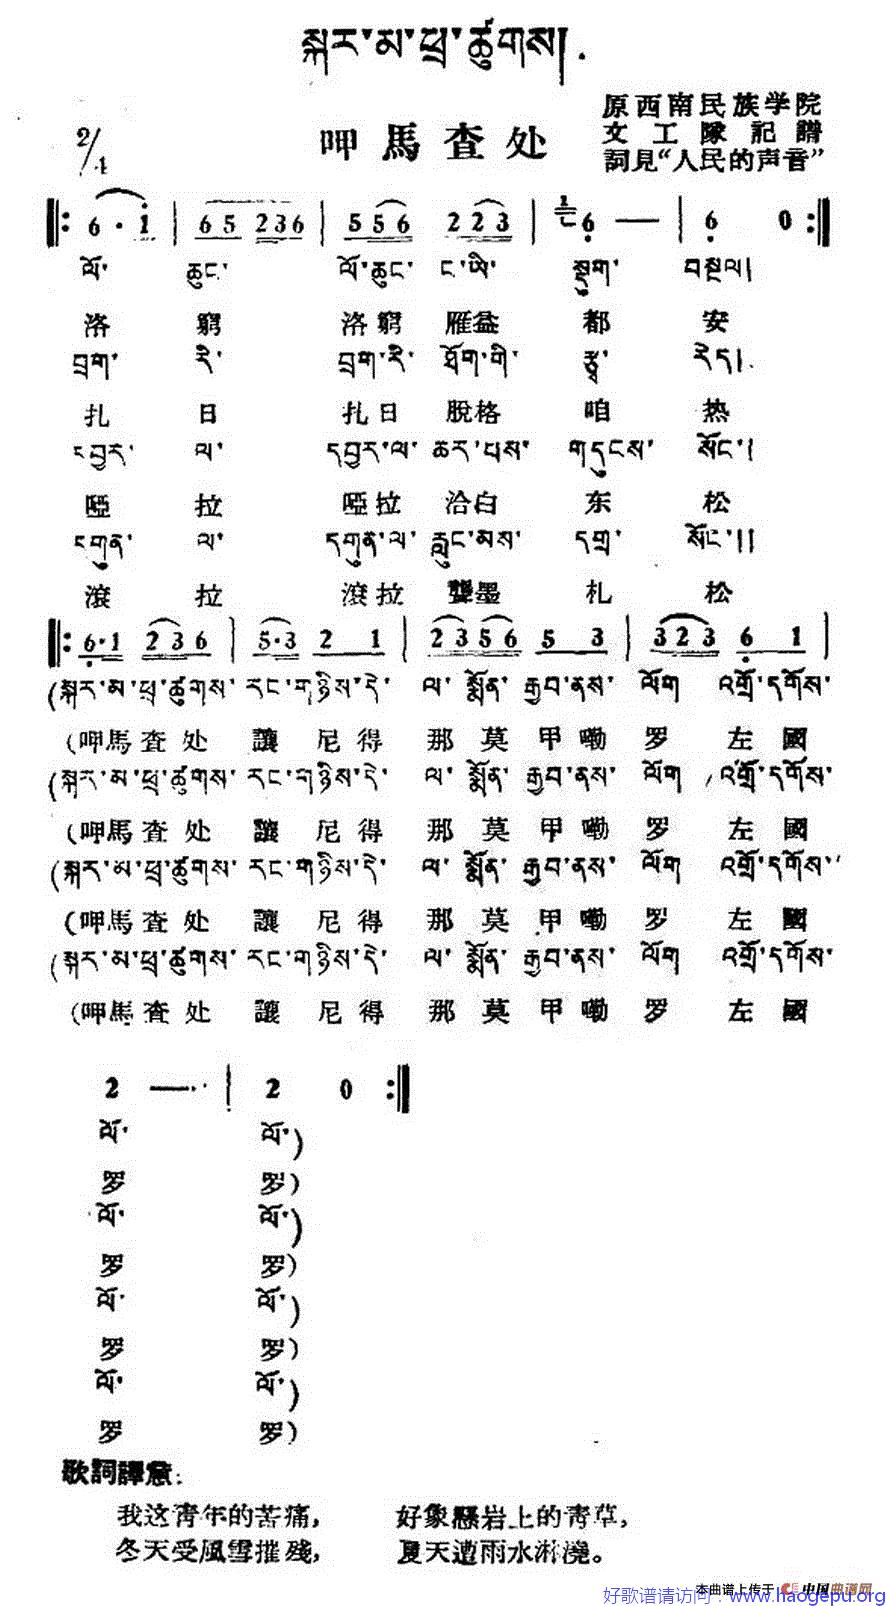 སྐར་མ་ཕྲ་ཚུགས།
呷馬查处
原西南民族学院
文工隊記譜
詞見“人民的声音”
2/4
6 · 1 | 65 236 | 5 56 2 23 | 6 — | 6 0
ལོ་ ཆུང་ ལོ་ཆུང་ ང་ཡི་ སྡུག་ བསྔལ།
洛 窮 洛 窮 雁益 都 安
བྲག་ རི་ བྲག་རི་ ཐོག་གི་ རྩྭ་ རེད།
扎 日 扎日 脫格 咱 热
དབྱར་ ལ་ དབྱར་ལ་ ཆར་པས་ གདུངས་ སོང་།
啞 拉 啞拉 洽白 东 松
དགུན་ ལ་ དགུན་ལ་ རླུང་མས་ དཀྲ་ སོང་།།
滾 拉 滾拉 龔墨 札 松
6·1 2 3 6 | 5·3 2 1 | 2 3 5 6 5 3 | 3 2 3 6 1
(སྐར་མ་ཕྲ་ཚུགས་ རང་གཉིས་དེ་ ལ་ སྨོན་ རྒྱབ་ནས་ ལོག འགྲོ་དགོས་
(呷馬查处 讓 尼得 那莫甲嘞罗 左國
(སྐར་མ་ཕྲ་ཚུགས་ རང་གཉིས་དེ་ ལ་ སྨོན་ རྒྱབ་ནས་ ལོག འགྲོ་དགོས་
(呷馬查处 讓 尼得 那莫甲嘞罗 左國
(སྐར་མ་ཕྲ་ཚུགས་ རང་གཉིས་དེ་ ལ་ སྨོན་ རྒྱབ་ནས་ ལོག འགྲོ་དགོས་
(呷馬查处 讓 尼得 那莫甲嘞罗 左國
(སྐར་མ་ཕྲ་ཚུགས་ རང་གཉིས་དེ་ ལ་ སྨོན་ རྒྱབ་ནས་ ལོག འགྲོ་དགོས་
(呷馬查处 讓 尼得 那莫甲嘞罗 左國
2 — | 2 0
ལོ་ ལོ་)
罗 罗)
ལོ་ ལོ་)
罗 罗)
ལོ་ ལོ་)
罗 罗)
ལོ་ ལོ་)
罗 罗)
歌詞譯意:
我这青年的苦痛, 好象懸岩上的青草,
冬天受風雪摧残, 夏天遭雨水淋澆。
本曲谱上传于 中国曲谱网
好歌谱请访问：www.haogepu.org